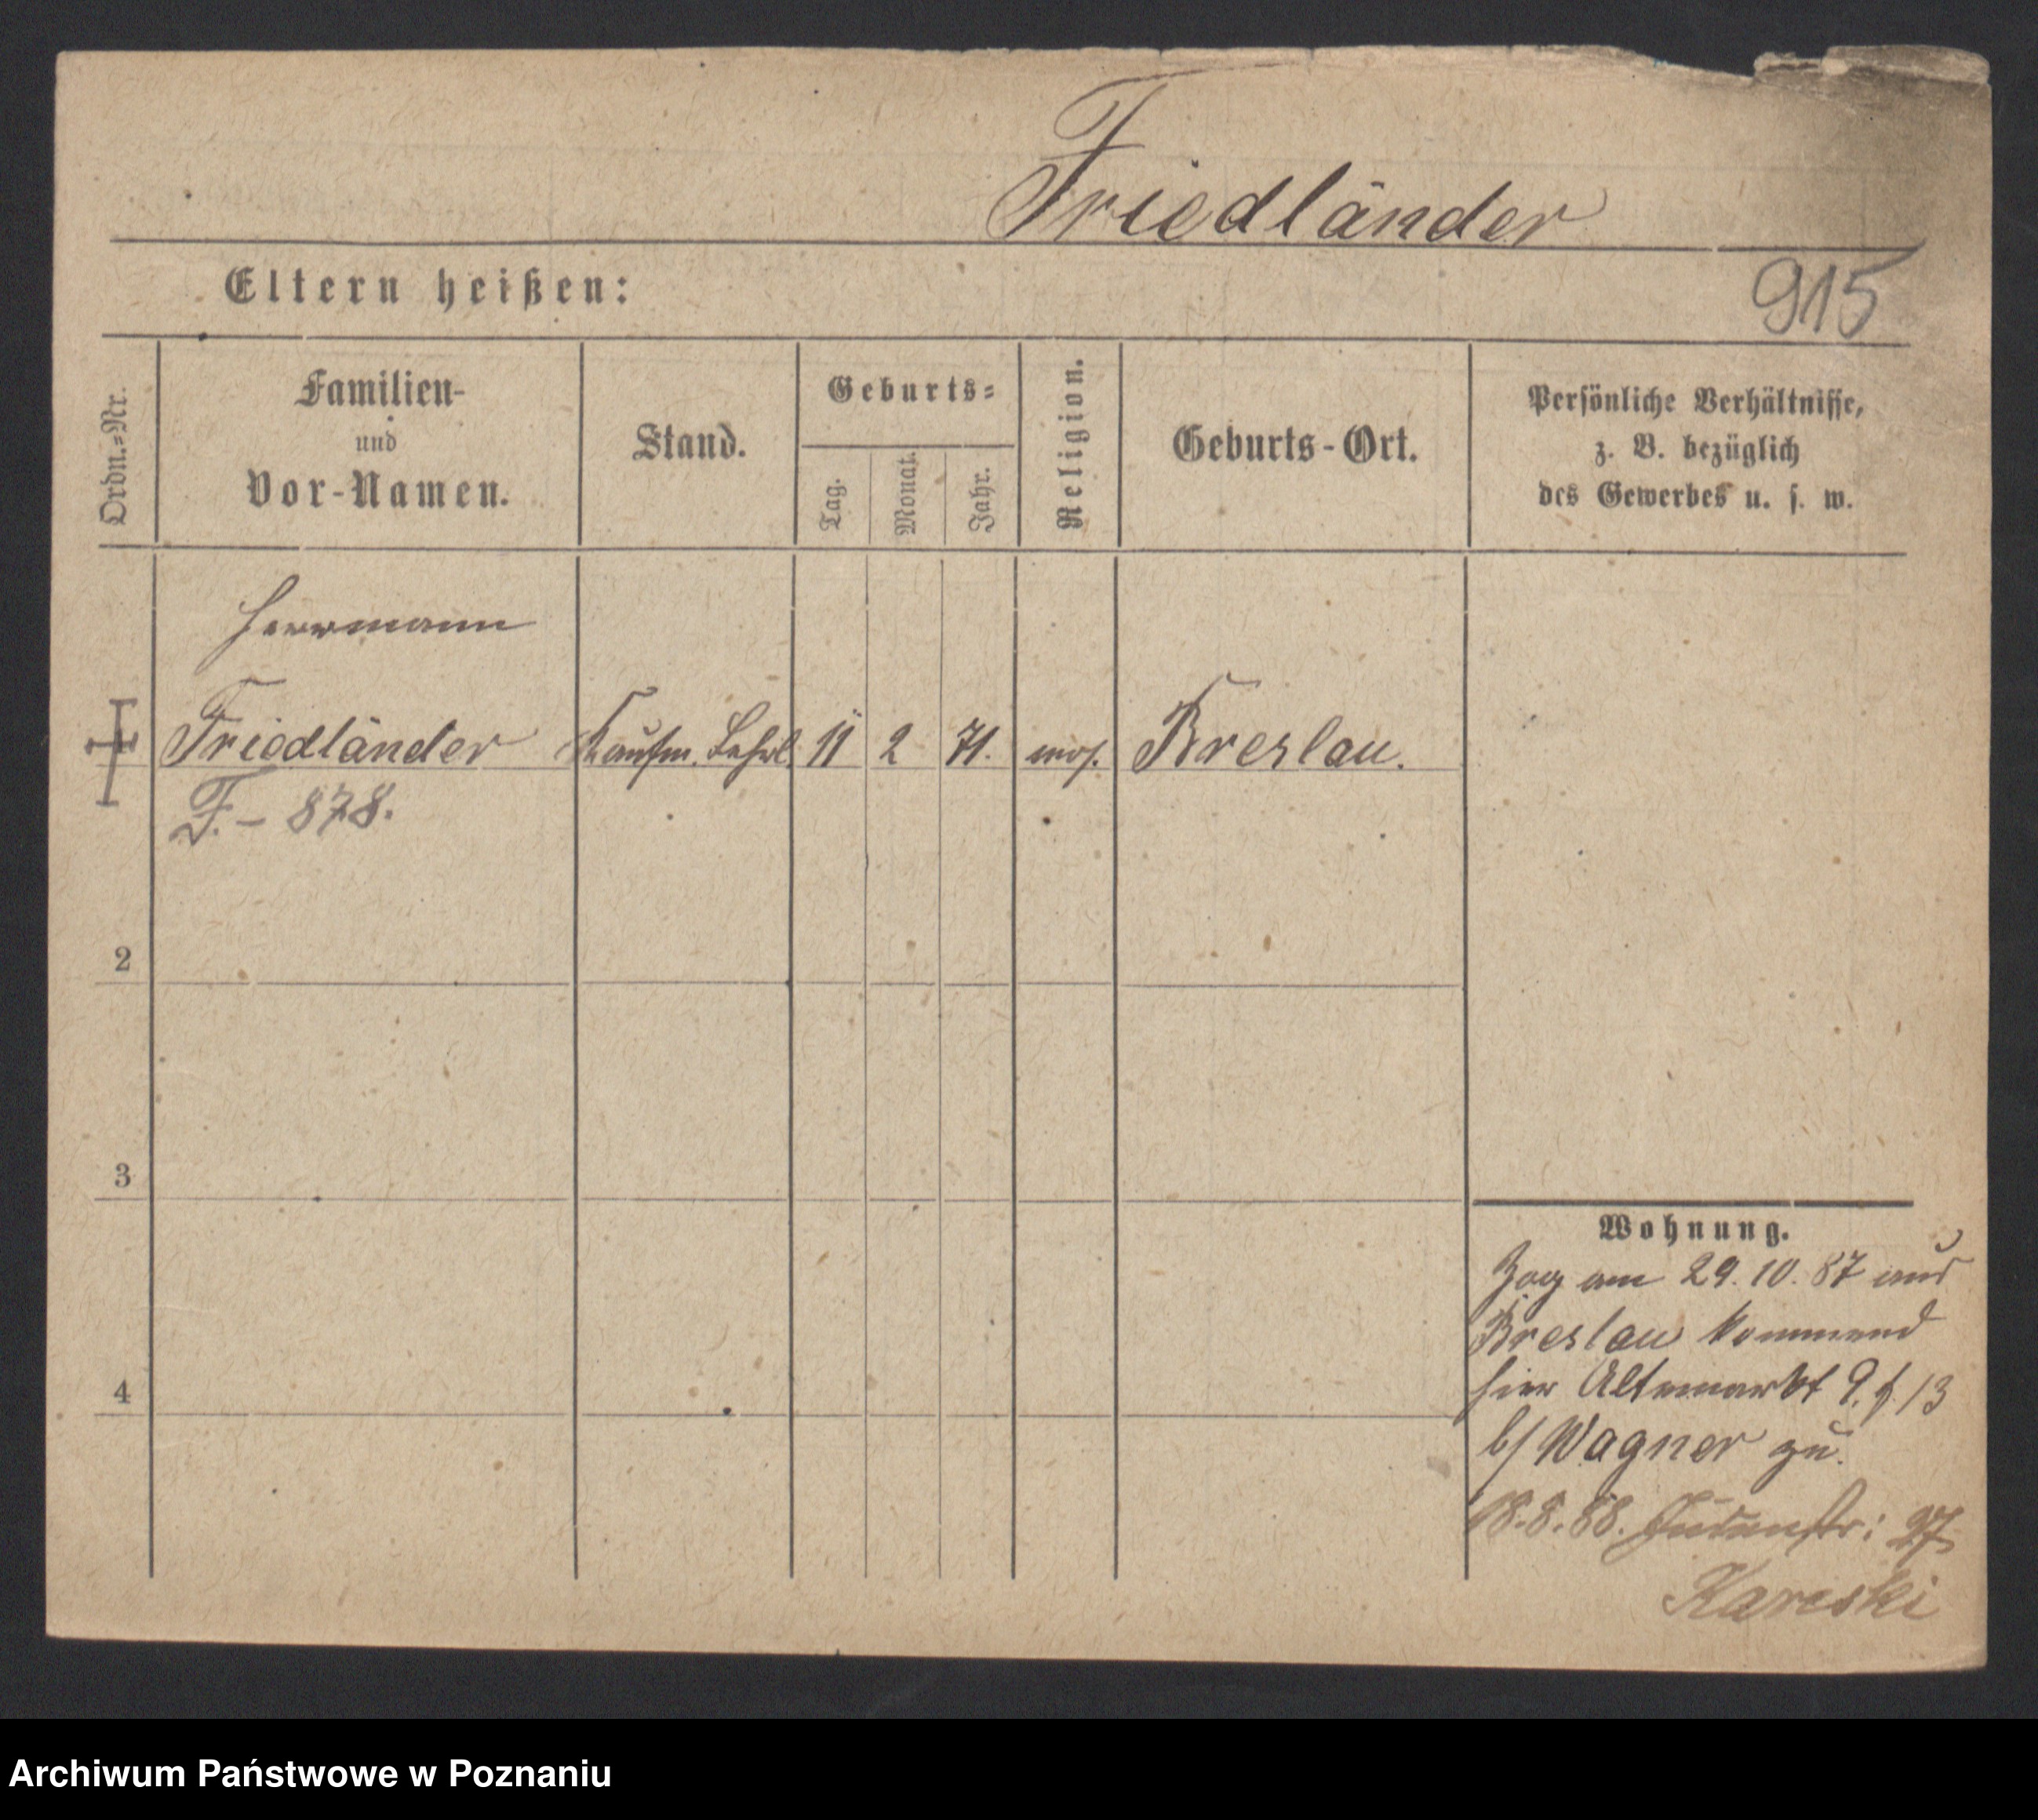 Friedländer
Eltern heißen:
915
Ordn.=Nr.
Familien-
und
Vor-Namen.
Stand.
Geburts=
Tag.
Monat.
Jahr.
Religion.
Geburts-Ort.
Persönliche Verhältnisse,
z. B. bezüglich
des Gewerbes u. s. w.
Herrmann
Friedländer Kaufm. Lehrl. 11 2 71. mos. Breslau.
F. - 878.
2
3
4
Wohnung.
Zog am 29.10.87 aus
Breslau kommend
hier Altemarkt 9. f. 13
b/ Wagner zu.
18.8.88. Judenstr: 27
Kareski
Archiwum Państwowe w Poznaniu